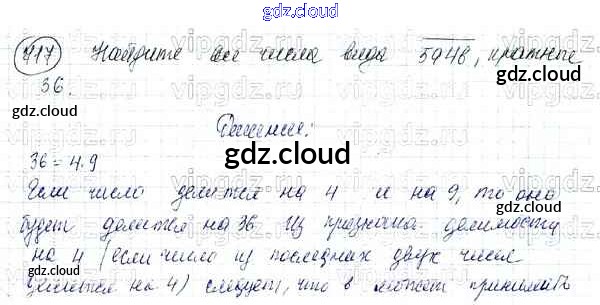 gdz.cloud
417 Найдите все числа вида 5948, кратные
36.
gdz.cloud
gdz.cloud
Решение:
gdz.cloud
36 = 4·9
Если число делится на 4 и на 9, то оно
gdz.cloud
будет делится на 36. Из признака делимости
на 4 (если число из последних двух чисел
gdz.cloud
gdz.cloud
делится на 4) следует, что в может принимать